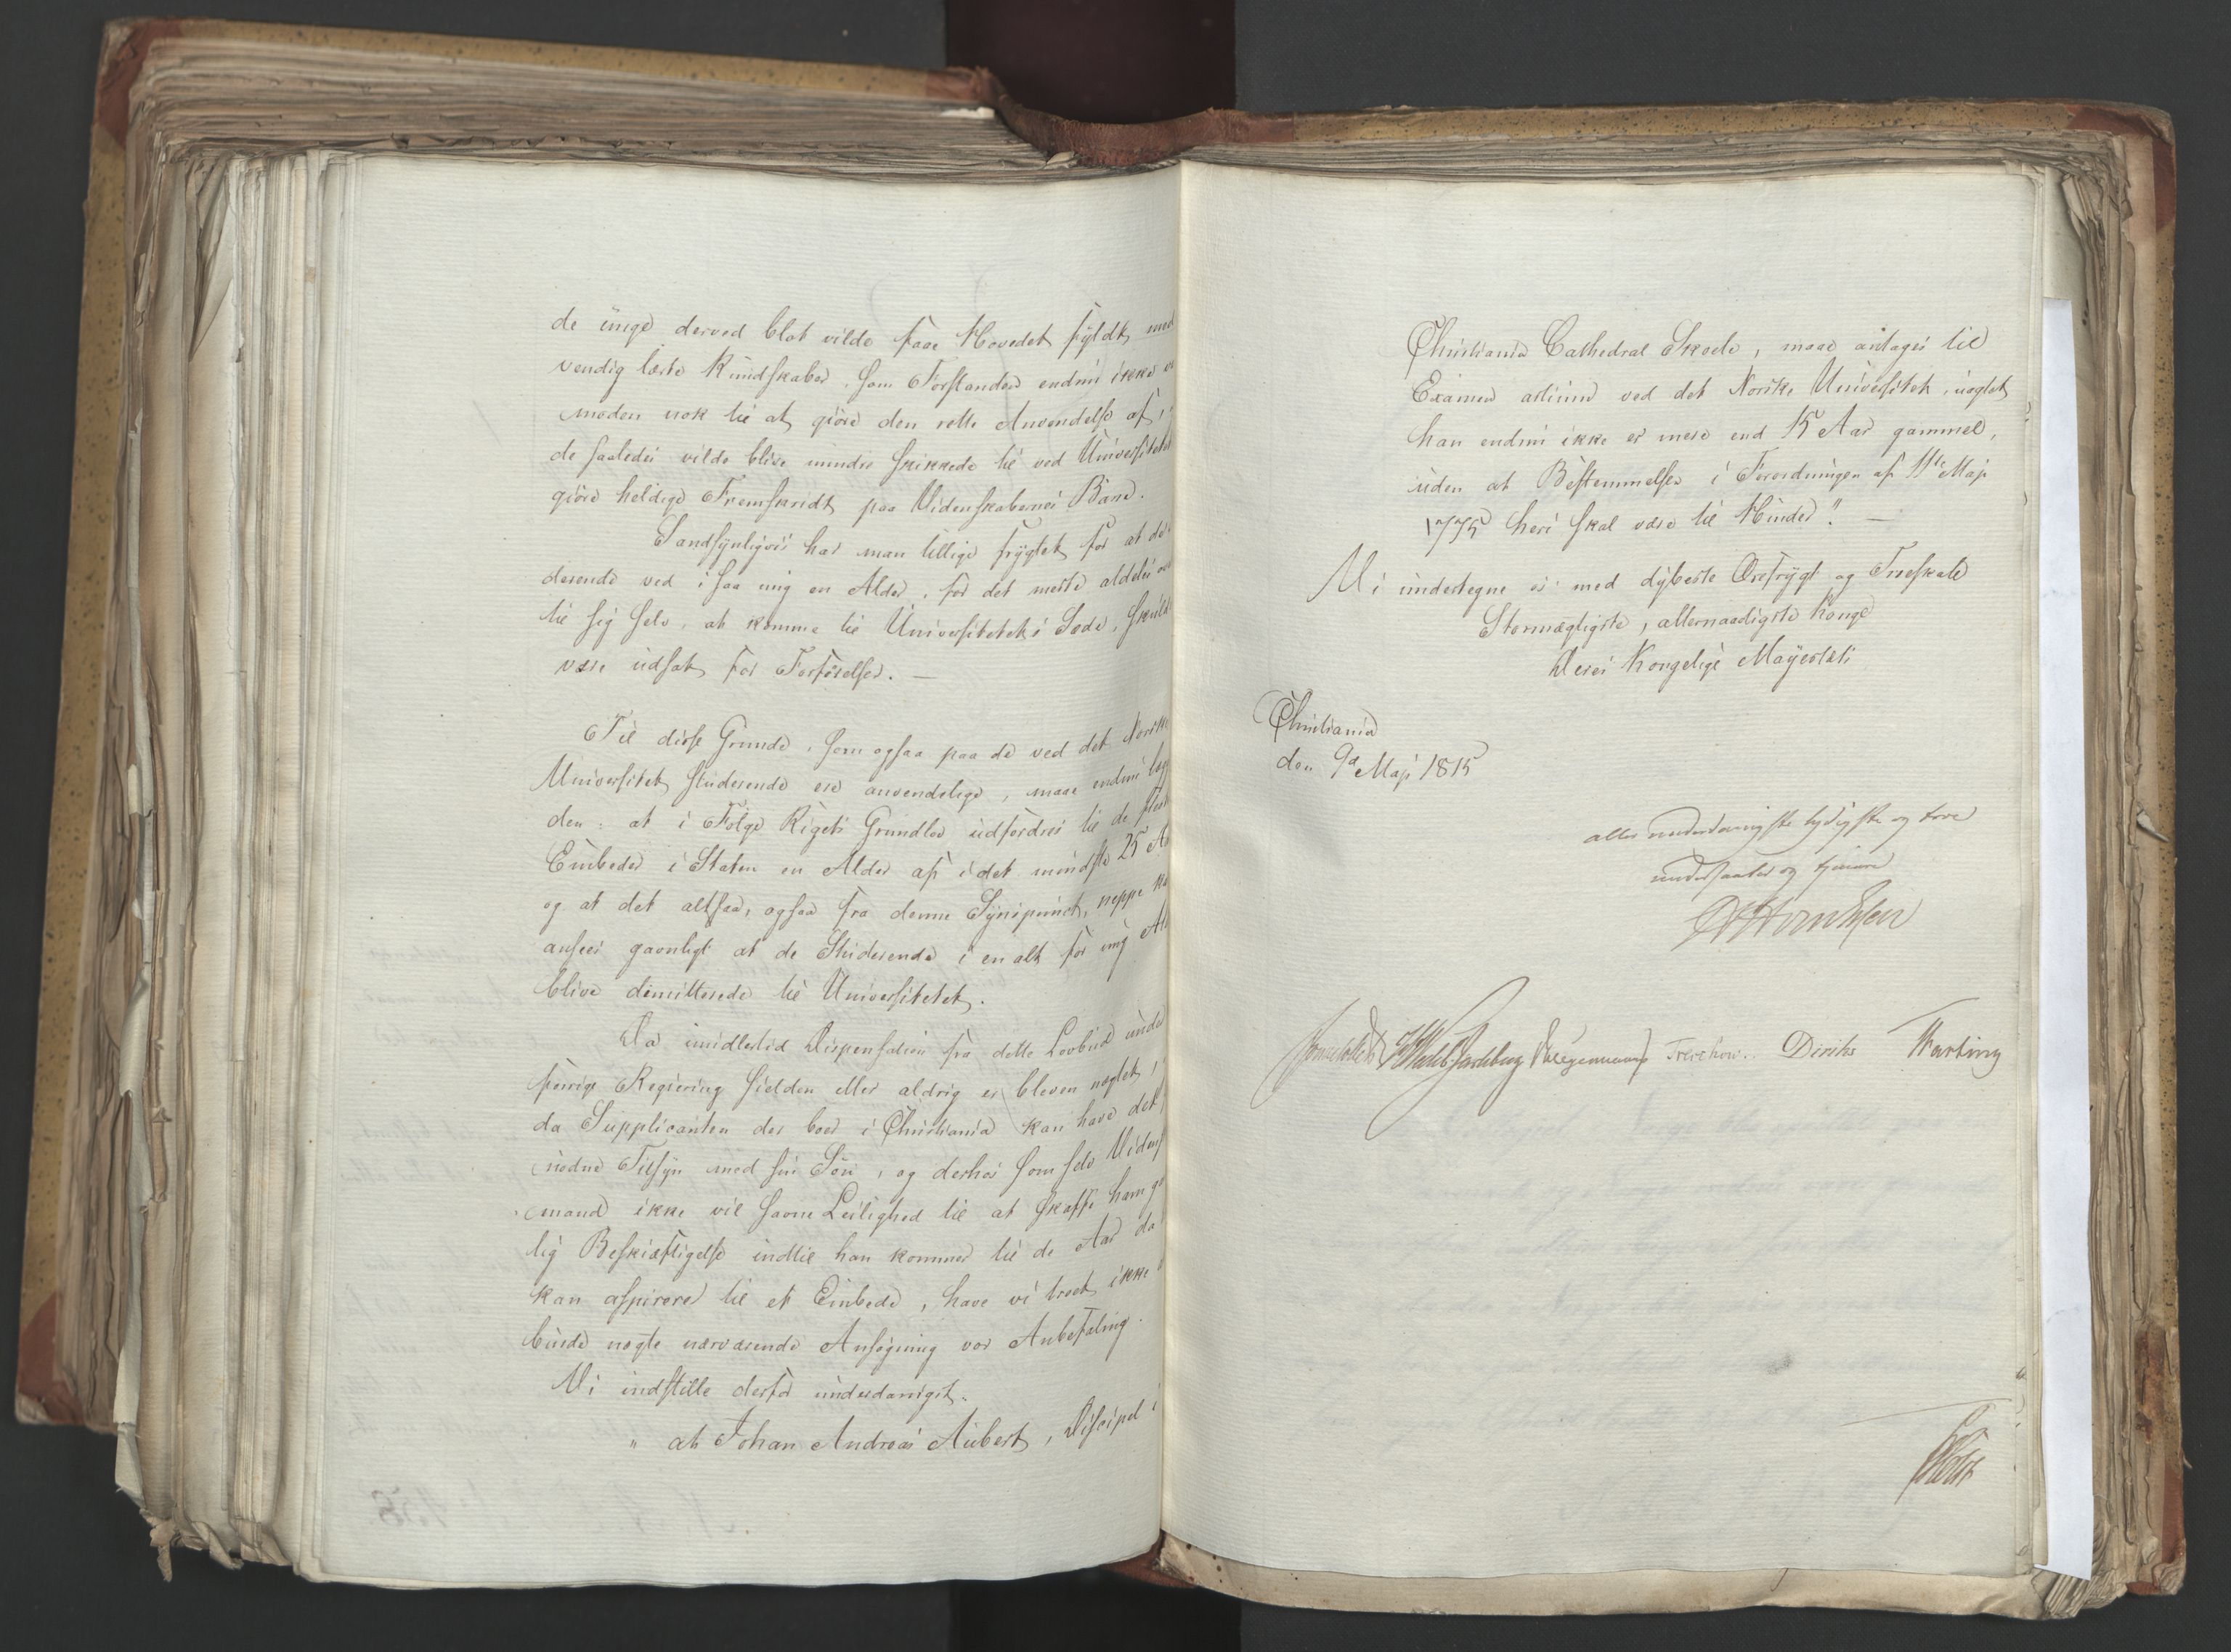 de unge derved blot vilde faae Hovedet fyldt med
vendig lærte Kundskaber, som Forstanden endnu ikke
moden nok til at giöre den rette Anvendelse af,
de saaledes vilde blive mindre skikkede til ved Universitetet
giöre heldige Fremskridt paa Videnskabernes Bane.
Sandsynligviis har man tillige frygtet for at de
derende ved i saa ung en Alder, for det meste aldeles
til sig selv, at komme til Universitetets Sæde, skulde
være udsat for Forförelser. —
Til disse Grunde, som ogsaa paa de ved det Norske
Universitet studerende ere anvendelige, maae endnu
den: at i Følge Rigets Grundlov udfordres til de fleste
Embeder i Staten en Alder af idet mindste 25
og at det altsaa, ogsaa fra denne Synspunct, neppe
ansees gavnligt at de Studerende i en alt for ung
blive dimitterede til Universitetet.
Da imidlertid Dispensation fra dette Lovbud under
forrige Regiering sielden eller aldrig er bleven negtet,
da Supplicanten der boer i Christiania kan have det
nödne Tilsyn med sin Sön, og derhos som selv
mand ikke vil savne Leilighed til at skaffe ham
lig Beskiæftigelse indtil han kommer til de Aar da
kan aspirere til et Embede, have vi troet ikke
burde negte nærværende Ansøgning vor Anbefaling.
Vi indstille derfor underdanigst.
" at Johan Andreas Aubert, Discipel i
Christiania Cathedral Skole, maae antages til
Examen artium ved det Norske Universitet, uagtet
han endnu ikke er mere end 15 Aar gammel,
uden at Bestemmelsen i Forordningen af 11te Maji
1775 heri skal være til Hinder". —
Vi undertegne os med dybeste Ærefrygt og Troeskab
Stormægtigste, allernaadigste Konge
Deres Kongelige Majestæts
Christiania
den 9d Maji 1815
allerunderdanigste lydigste og troe
undersaatter og tjenere
Sommerhielm H Wedel Jarlsberg Krogemann Treschow. Diriks Hasting
Holst